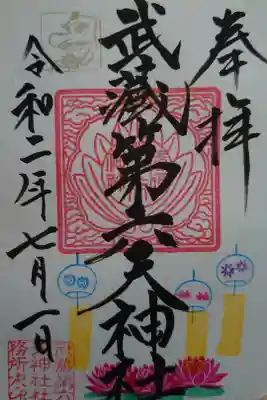 奉拝
武蔵第六天神社
令和二年七月一日